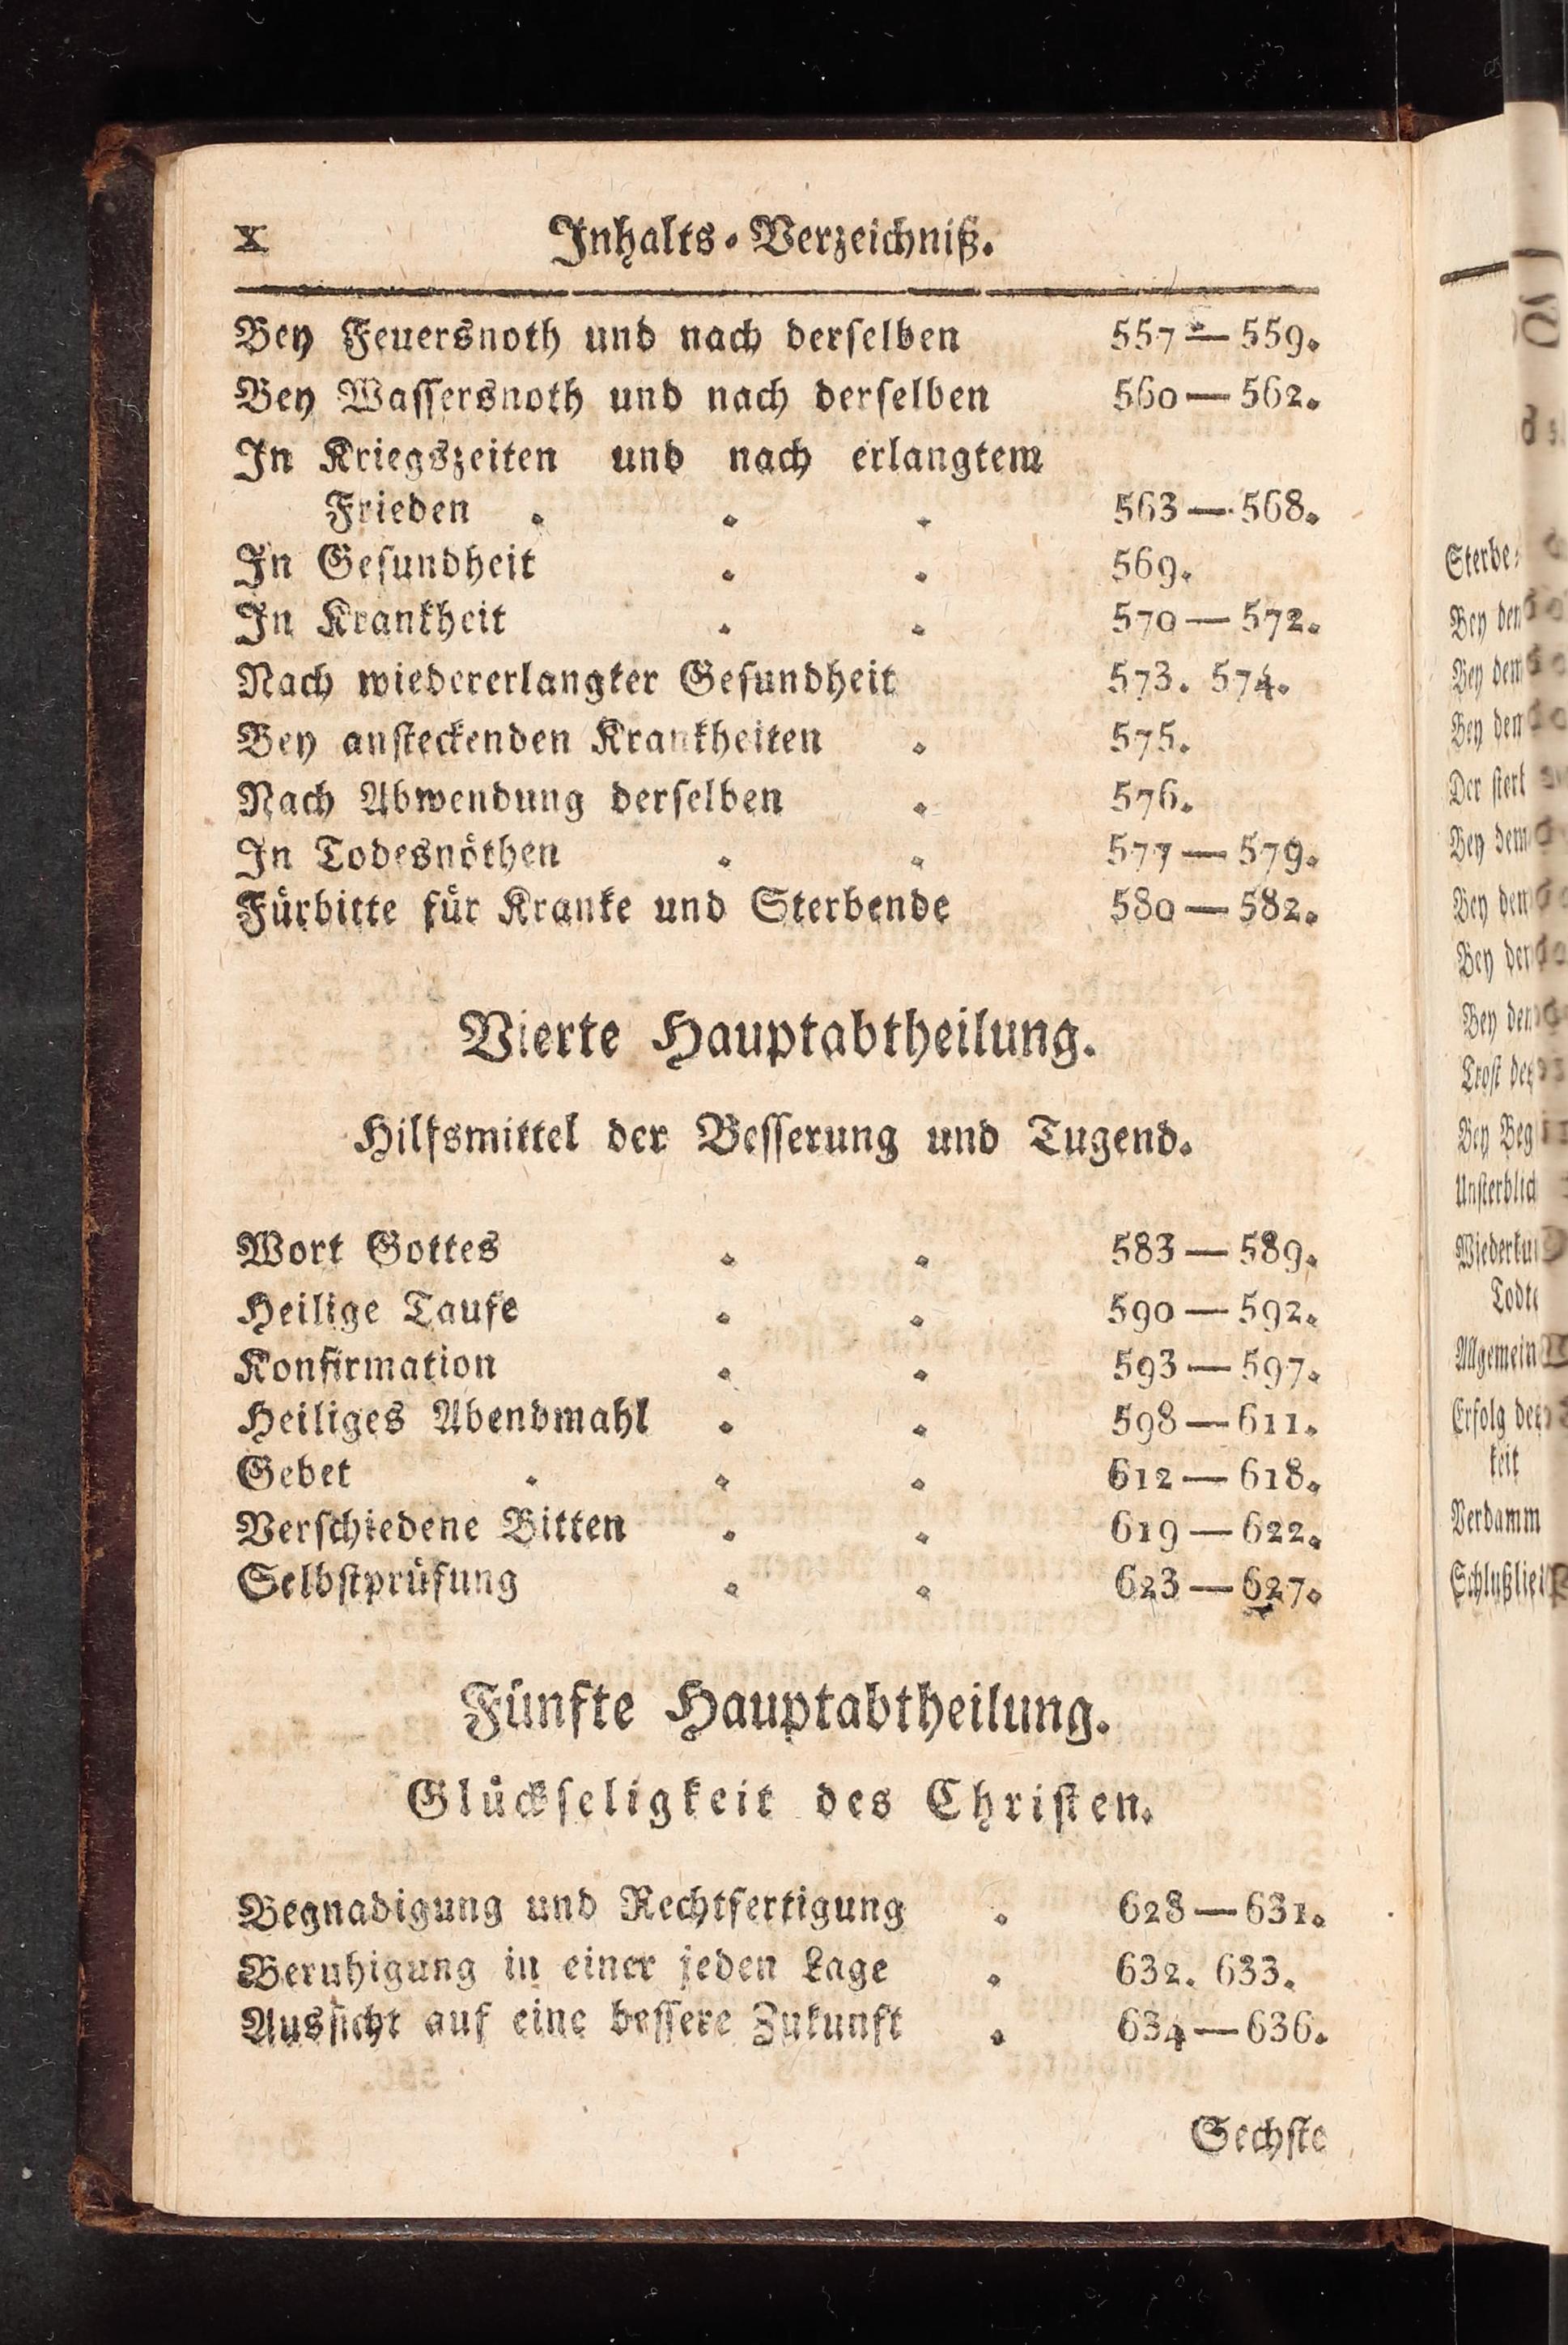 X Inhalts-Verzeichniß.
Bey Feuersnoth und nach derſelben 557—559.
Bey Waſſersnoth und nach derſelben 560—562.
In Kriegszeiten und nach erlangtem
Frieden . . . 563—568.
In Geſundheit . . 569.
In Krankheit . . 570—572.
Nach wiedererlangter Geſundheit 573. 574.
Bey anſteckenden Krankheiten . 575.
Nach Abwendung derſelben . 576.
In Todesnöthen . . 577—579.
Fürbitte für Kranke und Sterbende 580—582.
Vierte Hauptabtheilung.
Hilfsmittel der Beſſerung und Tugend.
Wort Gottes . . 583—589.
Heilige Taufe . . 590—592.
Konfirmation . . 593—597.
Heiliges Abendmahl . . 598—611.
Gebet . . . 612—618.
Verſchiedene Bitten . . 619—622.
Selbſtprüfung . . 623—627.
Fünfte Hauptabtheilung.
Glückſeligkeit des Chriſten.
Begnadigung und Rechtfertigung . 628—631.
Beruhigung in einer jeden Lage . 632. 633.
Ausſicht auf eine beſſere Zukunft . 634—636.
Sechſte
Sterbe-
Bey den
Bey dem
Bey den
Der ſterb
Bey dem
Bey dem
Bey der
Bey den
Troſt der
Bey Beg
Unſterblich
Wiederkun
Todte
Allgemein
Erfolg der
keit
Verdamm
Schlußlied